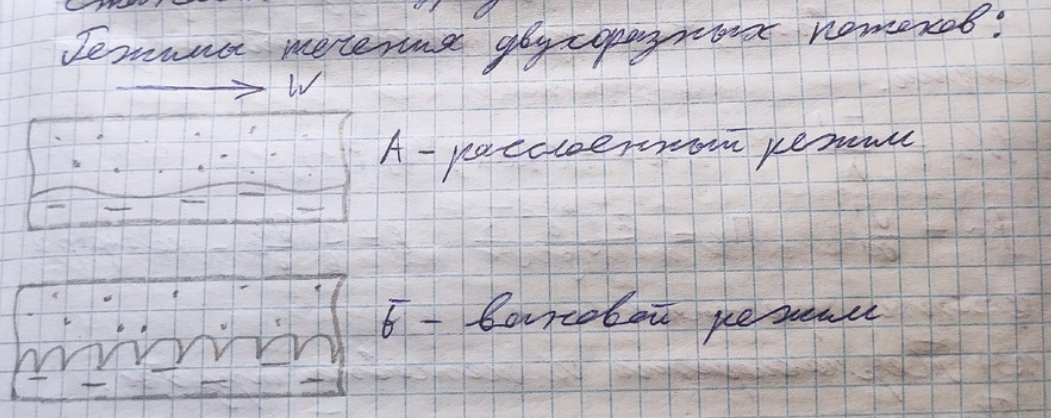 Режимы течения двухфазных потоков:
W
А - расслоенный режим
Б - волновой режим